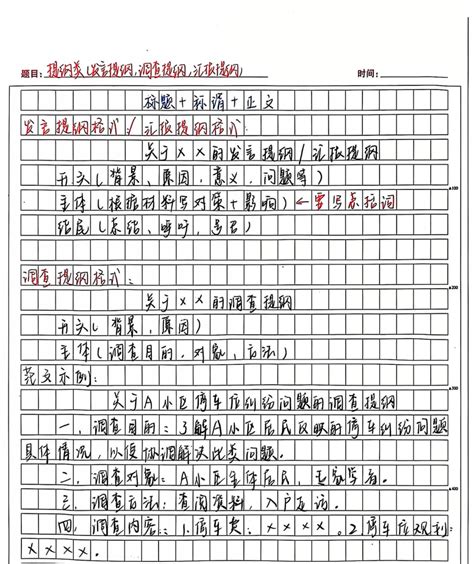 题目：提纲类（发言提纲，调查提纲，汇报提纲） 时间：
标题+称谓+正文
发言提纲格式/汇报提纲格式：
关于××的发言提纲/汇报提纲
开头（背景、原因、意义、问题等）
主体（根据材料写对策+影响）←要写总括词
结尾（总结、呼吁、号召）
调查提纲格式：
关于××的调查提纲
开头（背景、原因）
主体（调查目的、对象、方法）
范文示例：
关于A小区停车位纠纷问题的调查提纲
一、调查目的：了解A小区居民反映的停车纠纷问题
具体情况，以便协调解决此类问题。
二、调查对象：A小区全体居民，
三、调查方法：查阅资料，入户走访。
四、调查内容：1.停车类：××××。2.停车位规划：
××××。